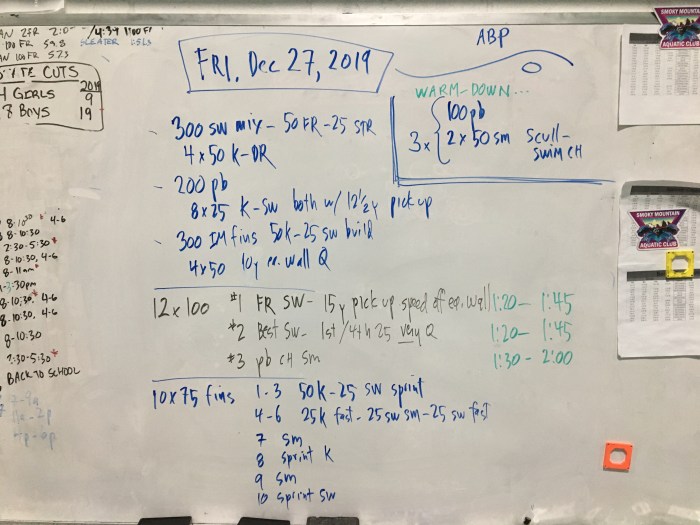 2:0
/4:34 1100 Fr
100 FR 59.8
SLEATER
100 FR 52.5
CUTS
2019
GIRLS 9
8 BOYS 19
FRI, Dec 27, 2019
ABP
WARM-DOWN...
3x
100 pb
2 x 50 sm Scull-
SWIM CH
- 300 SW mix - 50 FR - 25 STR
4 x 50 K-DR
- 200 pb
8 x 25 K-SW both w/ 12 1/2 y pick up
- 300 IM fins 50K - 25 SW build
4 x 50 10y ea. wall Q
12 x 100 #1 FR SW - 15y pick up speed off ea. wall 1:20 - 1:45
#2 Best SW - 1st/4th 25 very Q 1:20 - 1:45
#3 pb CH Sm 1:30 - 2:00
10 x 75 fins 1-3 50K - 25 SW sprint
4-6 25K fast - 25 SW sm - 25 SW fast
7 sm
8 sprint K
9 sm
10 sprint SW
8-10:30 4-6
8-10:30
2:30-5:30*
8-10:30, 4-6
8-11am
-3:30pm
8-10:30 4-6
8-10:30, 4-6
8-10:30
2:30-5:30*
BACK TO SCHOOL
SMOKY MOUNTAIN
AQUATIC CLUB
SMOKY MOUNTAIN
AQUATIC CLUB